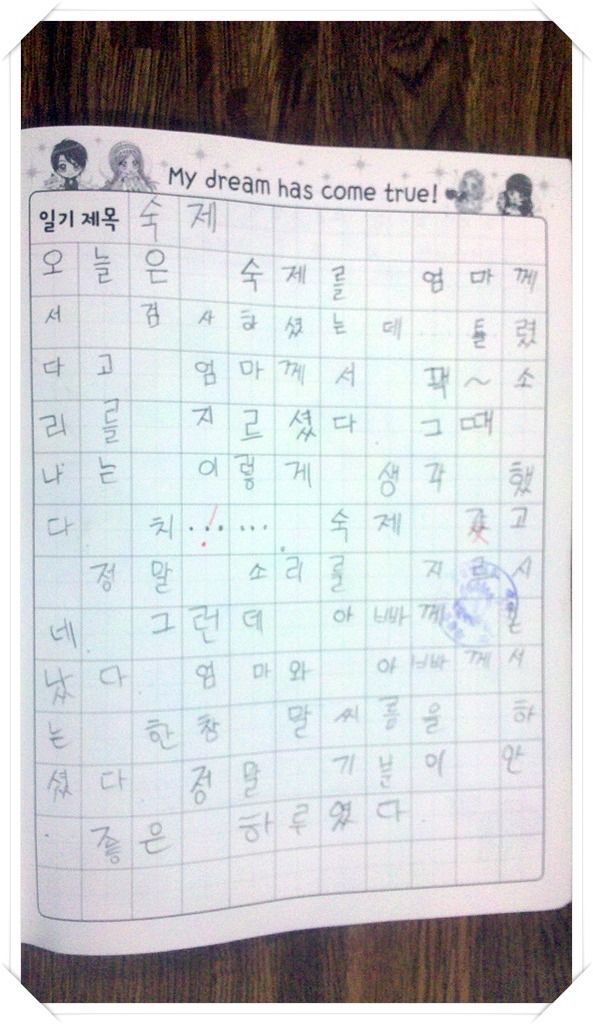 My dream has come true!
일기 제목 숙제
오늘은 숙제를 엄마께
서 검사하셨는데 틀렸
다고 엄마께서 꽥~소
리를 지르셨다. 그때
나는 이렇게 생각했
다. 치....... 숙제 갖고
정말 소리를 지르시
네. 그런데 아빠께 혼
났다. 엄마와 아빠께서
는 한참 말씨름을 하
셨다. 정말 기분이 안
좋은 하루였다.